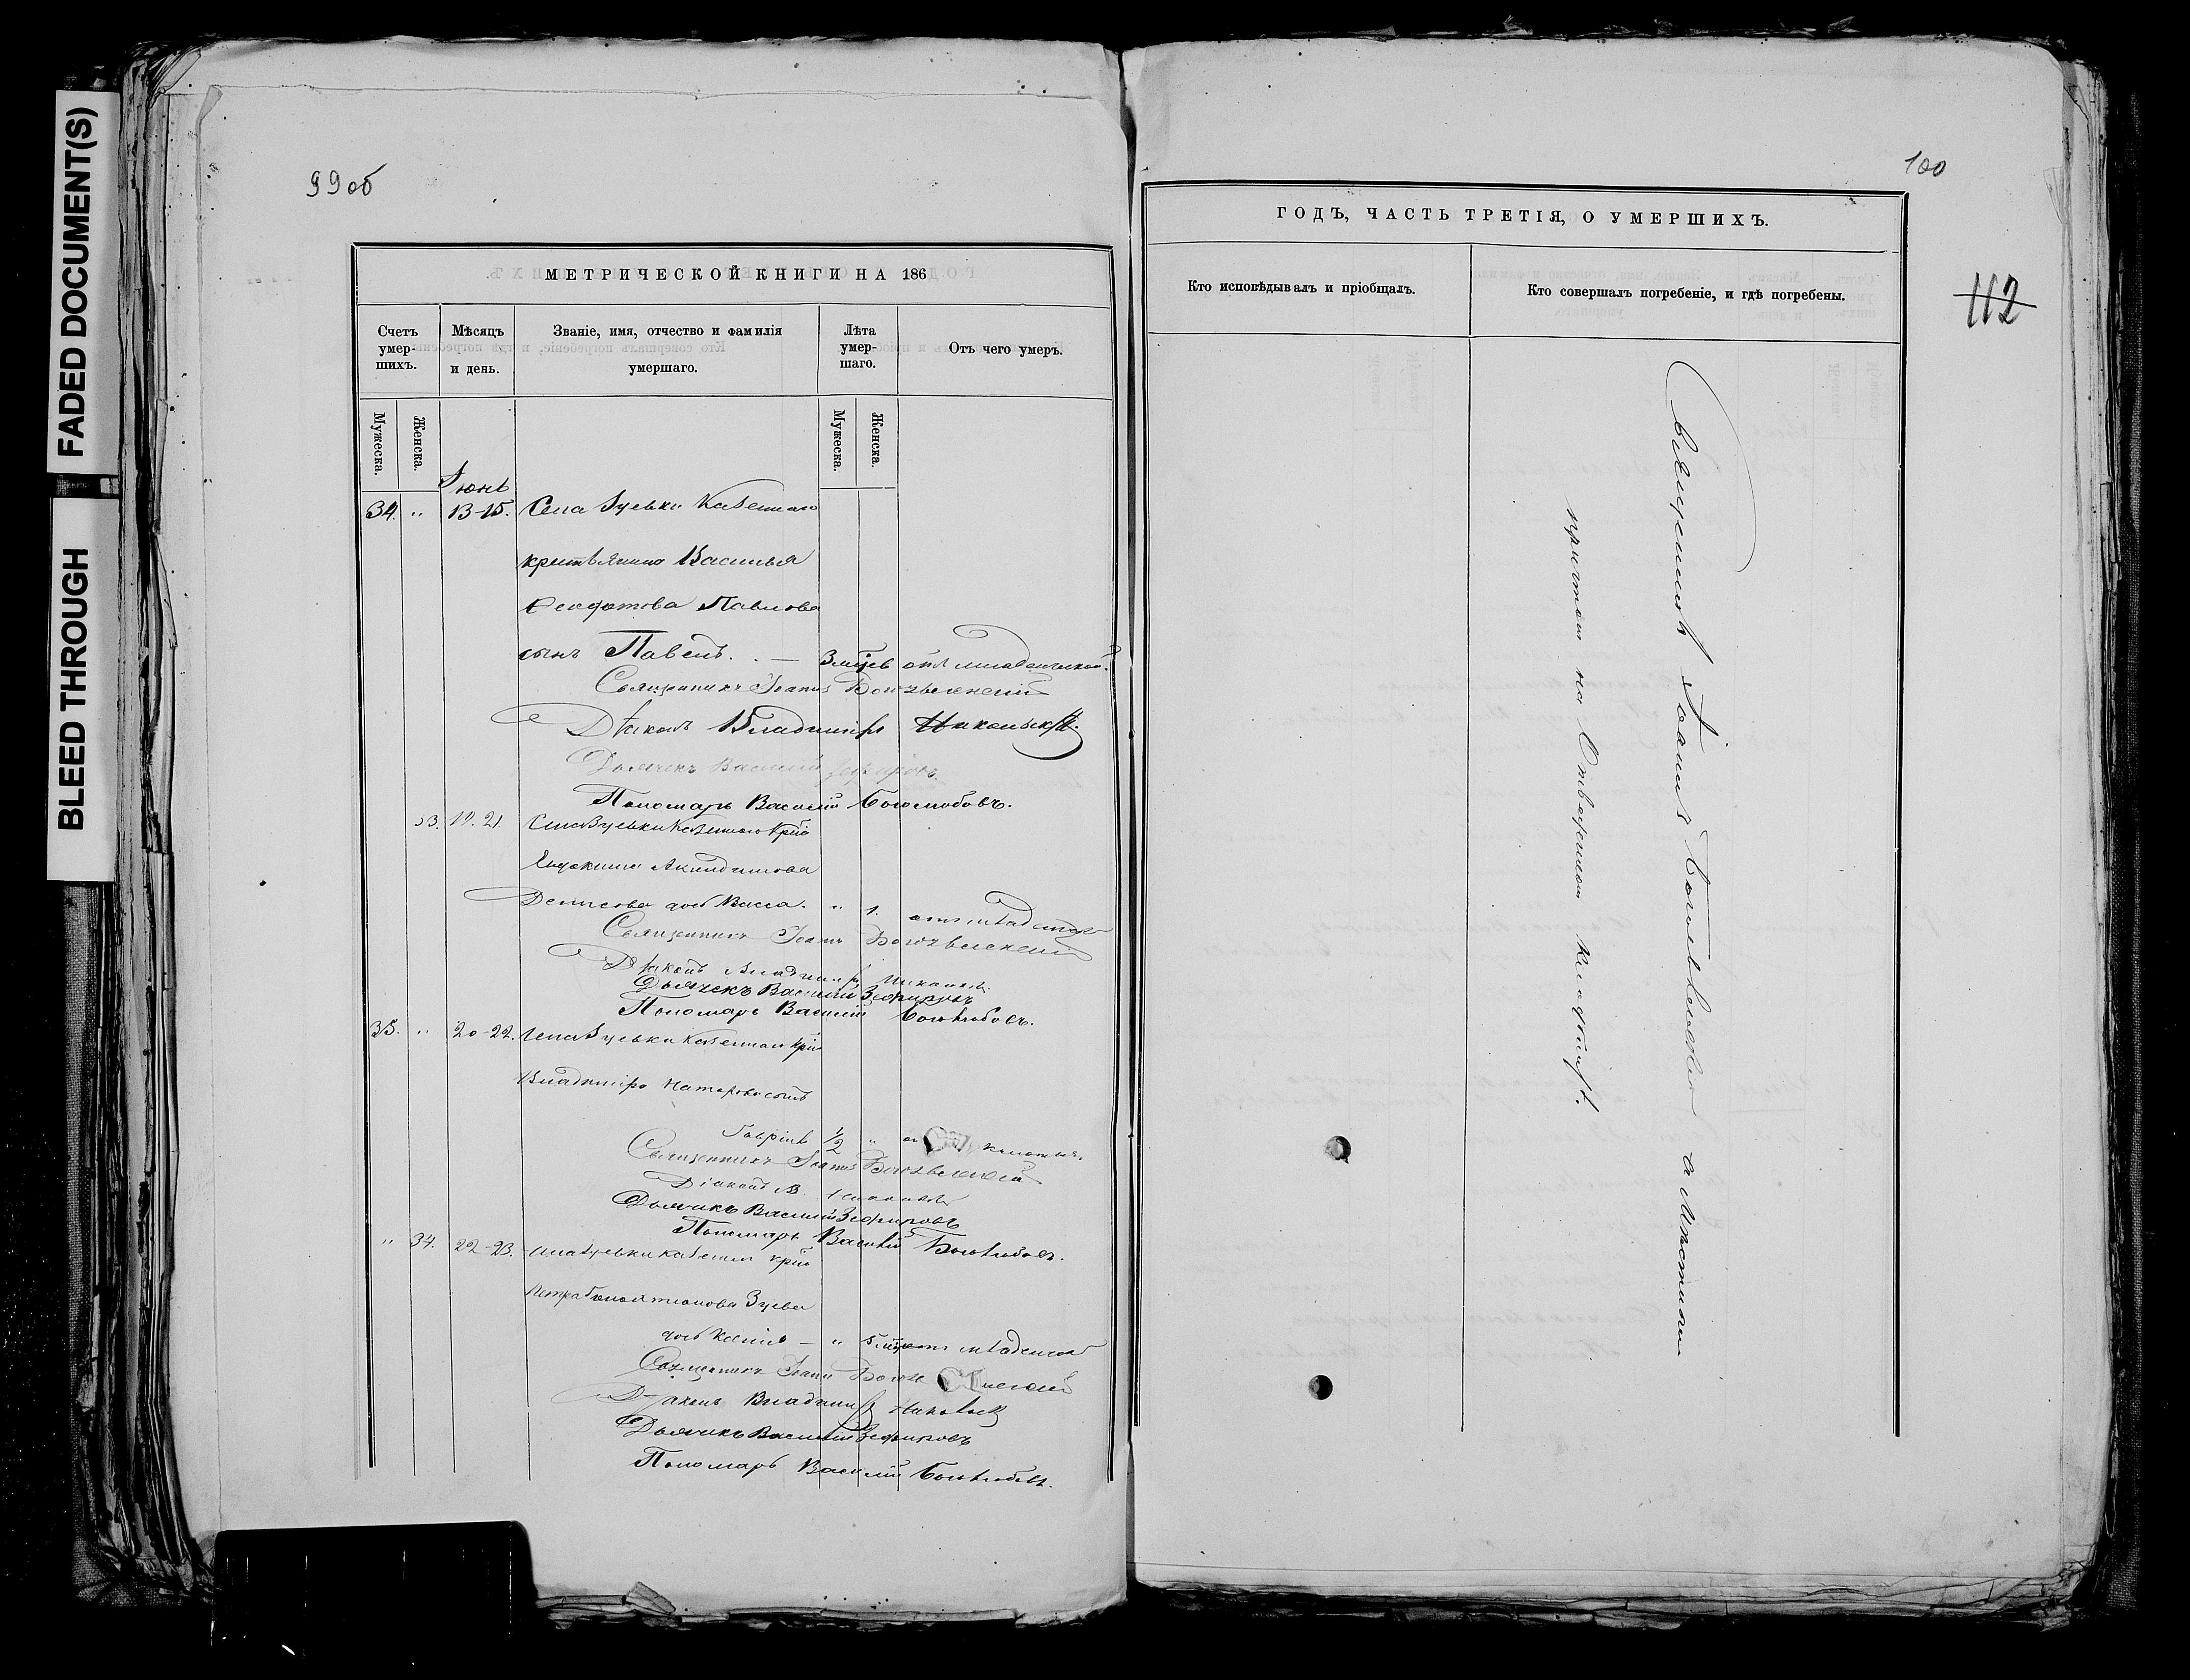 FADED DOCUMENT(S)
BLEED THROUGH
99об
МЕТРИЧЕСКОЙ КНИГИ НА 186
Счетъ умер-шихъ.
Мѣсяцъ и день.
Званіе, имя, отчество и фамилія умершаго.
Лѣта умер-шаго.
Отъ чего умеръ.
Мужеска.
Женска.
Мужеска.
Женска.
Іюнь
34. " 13-15. Села Зуевки Казеннаго
крестьянина Василья
Феофатова Павлова
сынъ Павелъ. — 3 мѣсяцев отъ младенческой.
Священникъ Іоаннъ Богоявленскій
Діаконъ Владиміръ Никольскій.
Дьячекъ Василій Зефировъ
Пономарь Василій Боголюбовъ.
33. 19. 21. Села Зуевки Казеннаго кр
Евдокима Акиндинова
Денисова дочь Васса. " 1. отъ младенческ
Священникъ Іоаннъ Богоявленскій
Діаконъ Владиміръ
Дьячекъ Василій Зефировъ
Пономарь Василій Боголюбовъ.
35. " 20-22. Села Зуевки Казеннаго кр
Владиміра сынъ
Гавріилъ 1/2 "
Священникъ Іоаннъ Богоявленскій
Діаконъ В.
Дьячикъ Василій Зефировъ
Пономарь Василій Боголюбовъ.
" 34. 22-23. Села Зуевки казенн кр
Петра Зуева
дочь Ксенія — " 5 отъ младенческ
Священникъ Іоаннъ
Діаконъ Владиміръ Никольск
Дьячикъ Василій Зефировъ
Пономарь Василій Боголюбовъ.
100
ГОДЪ, ЧАСТЬ ТРЕТІЯ, О УМЕРШИХЪ.
112
Кто исповѣдывалъ и пріобщалъ.
Кто совершалъ погребеніе, и гдѣ погребены.
Священникъ Іоаннъ Богоявленскій съ мѣстнымъ
причтомъ на отведенномъ кладбищѣ.